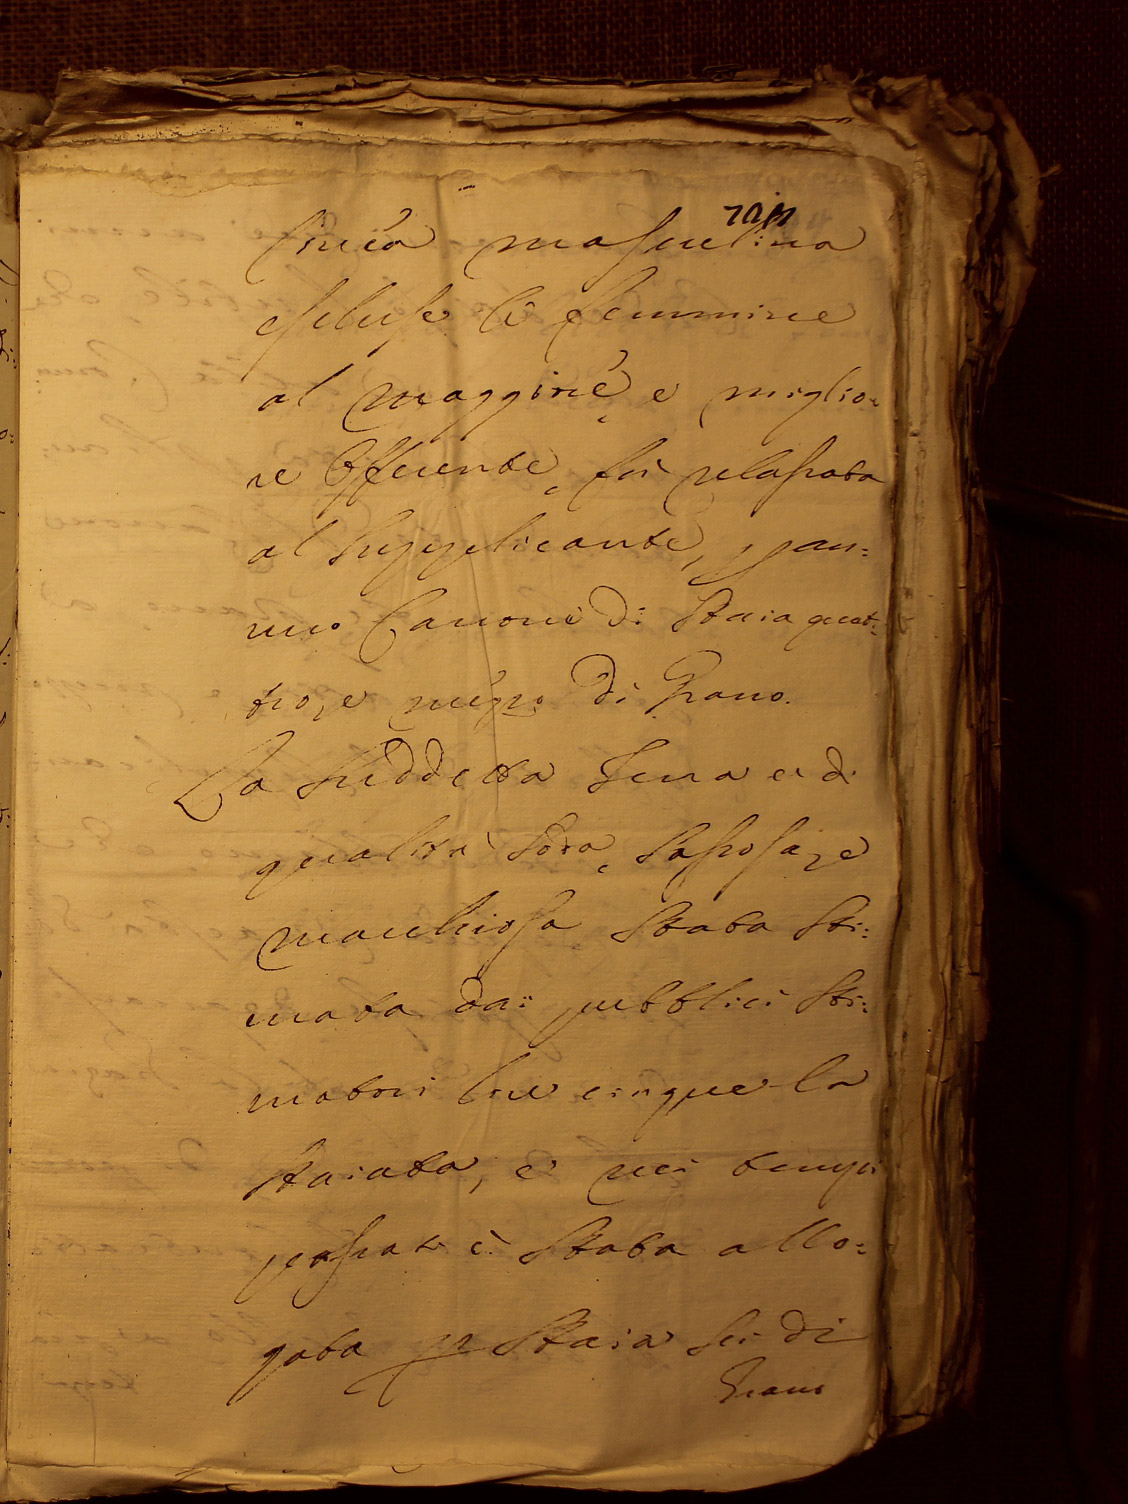 linea mascolina
escluse le femmine
al maggiore, e miglio=
re Offerente, fù rilassata
al supplicante, p an=
nuo Canone di Staia quat=
tro, e mezzo di Grano.
La suddetta Terra è di
qualità soda, sassosa, e
macchiosa stata sti=
mata dai pubblici Sti=
matori lire cinque la
staiata, e nei tempi
passati è stata allo=
gata p Staia sei di
Grano